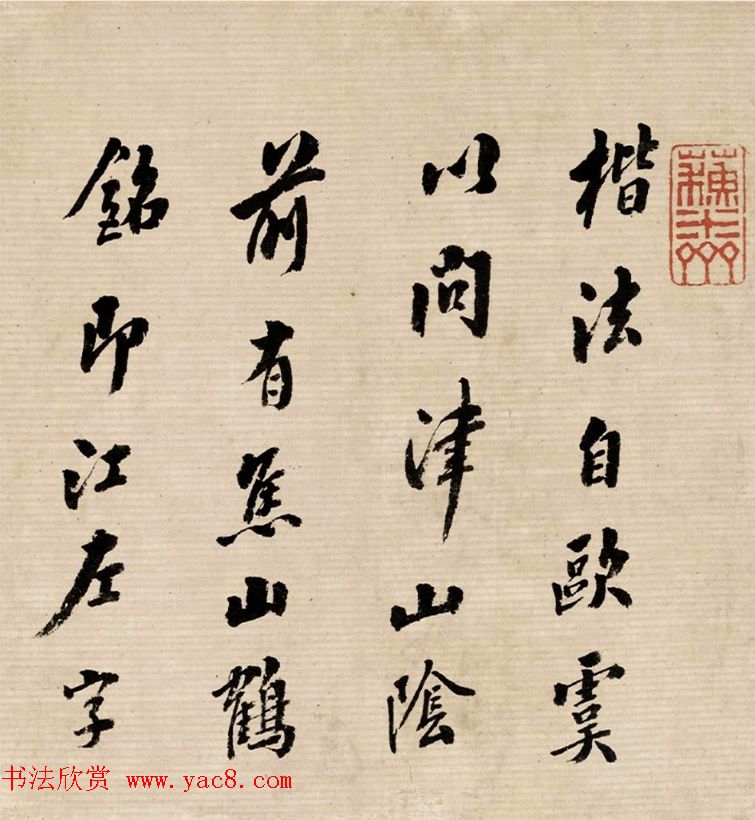 楷法自歐虞
以問津山陰
前有焦山鶴
銘即江左字
书法欣赏 www.yac8.com